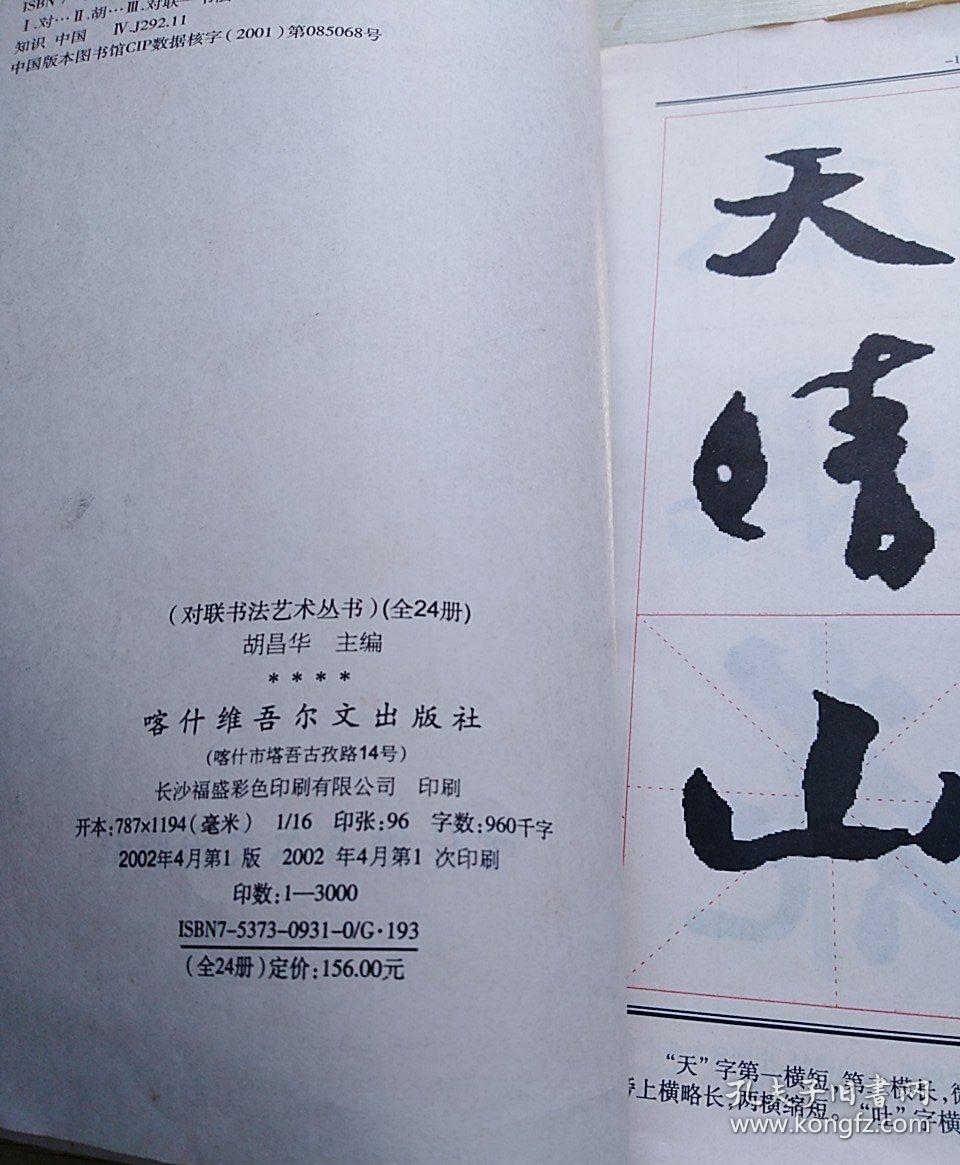 ISBN 7
Ⅰ.对…Ⅱ.胡…Ⅲ.对联—书法
知识 中国 Ⅳ.J292.11
中国版本图书馆CIP数据核字(2001)第085068号
(对联书法艺术丛书)(全24册)
胡昌华 主编
****
喀什维吾尔文出版社
(喀什市塔吾古孜路14号)
长沙福盛彩色印刷有限公司 印刷
开本:787×1194(毫米) 1/16 印张:96 字数:960千字
2002年4月第1版 2002年4月第1次印刷
印数:1—3000
ISBN7-5373-0931-0/G·193
(全24册)定价:156.00元
天
晴
山
“天”字第一横短,第二横长,
上横略长,两横缩短。“吐”字横
孔夫子旧书网
www.kongfz.com